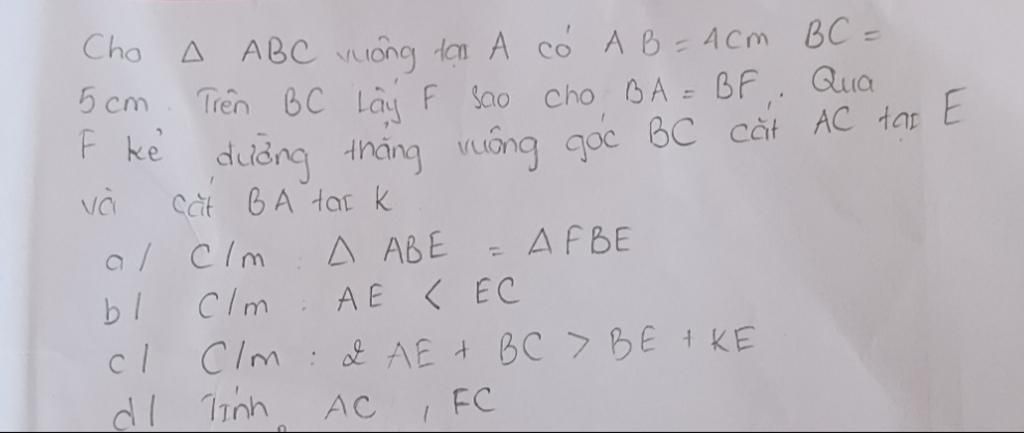 Cho Δ ABC vuông tại A có AB = 4cm BC =
5cm. Trên BC lấy F sao cho BA = BF. Qua
F kẻ đường thẳng vuông góc BC cắt AC tại E
và cắt BA tại K
a/ C/m : Δ ABE = Δ FBE
b/ C/m : AE < EC
c/ C/m : 2 AE + BC > BE + KE
d/ Tính AC , FC